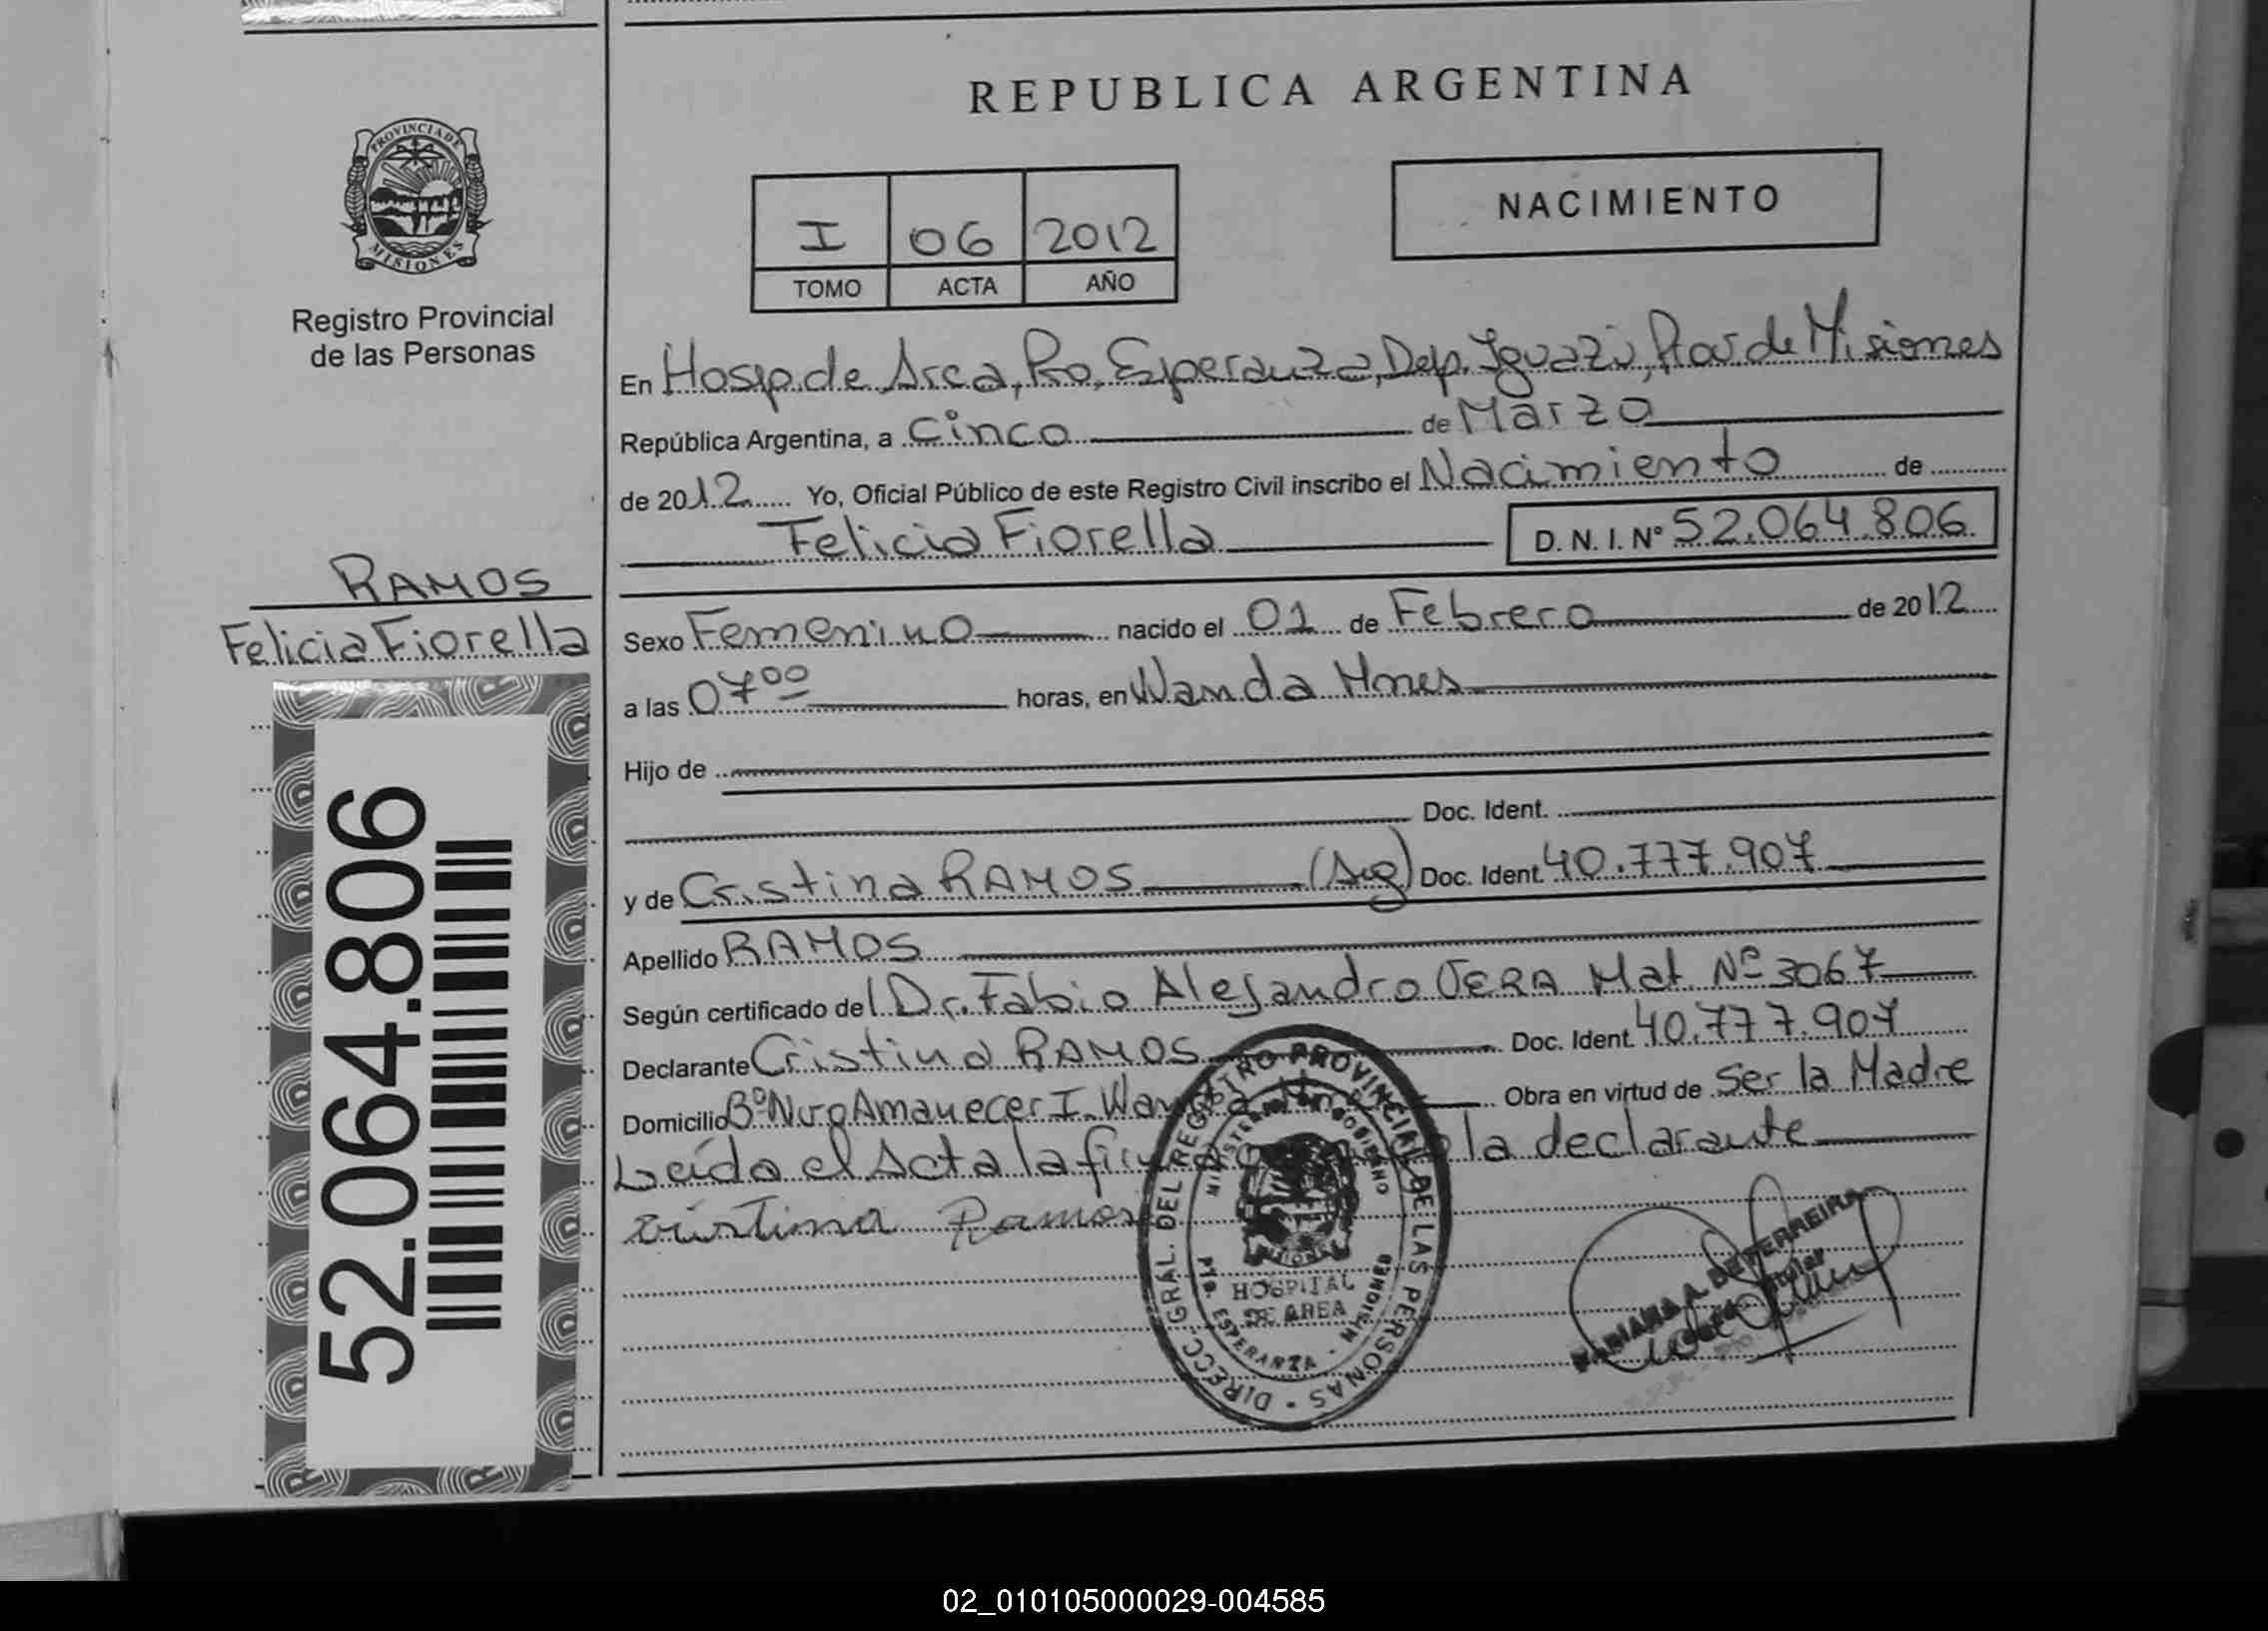 REPUBLICA ARGENTINA
PROVINCIA DE
MISIONES
Registro Provincial
de las Personas
I 06 2012
TOMO ACTA AÑO
NACIMIENTO
En Hosp. de Area, Pto. Esperanza, Dep. Iguazú, Pcia. de Misiones
República Argentina, a Cinco de Marzo
de 2012 Yo, Oficial Público de este Registro Civil inscribo el Nacimiento de
Felicia Fiorella D. N. I. Nº 52.064.806
RAMOS
Felicia Fiorella
52.064.806
Sexo Femenino nacido el 01 de Febrero de 2012
a las 07⁰⁰ horas, en Wanda Mnes
Hijo de
Doc. Ident.
y de Cristina RAMOS (Arg) Doc. Ident. 40.777.907
Apellido RAMOS
Según certificado del Dr. Fabio Alejandro VERA Mat. Nº 3067
Declarante Cristina RAMOS Doc. Ident. 40.777.907
Domicilio Bº Nvo Amanecer I. Wanda Obra en virtud de Ser la Madre
Leída el Acta la la declarante
Cristina Ramos
DIRECC. GRAL. DEL REGISTRO PROVINCIAL DE LAS PERSONAS
MINISTERIO DE GOBIERNO
MISIONES
HOSPITAL
DE AREA
PTO. ESPERANZA - MISIONES
MARIANA A. DE FERREIRA
Titular
02_010105000029-004585